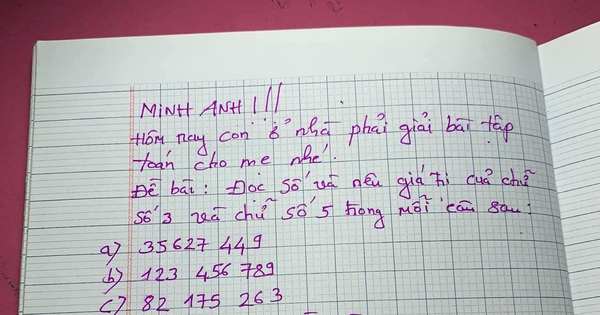 MINH ANH!!!
Hôm nay con ở nhà phải giải bài tập
toán cho mẹ nhé.
Đề bài: Đọc số và nêu giá trị của chữ
số 3 và chữ số 5 trong mỗi câu sau:
a) 35627 449
b) 123 456 789
c) 82 175 263